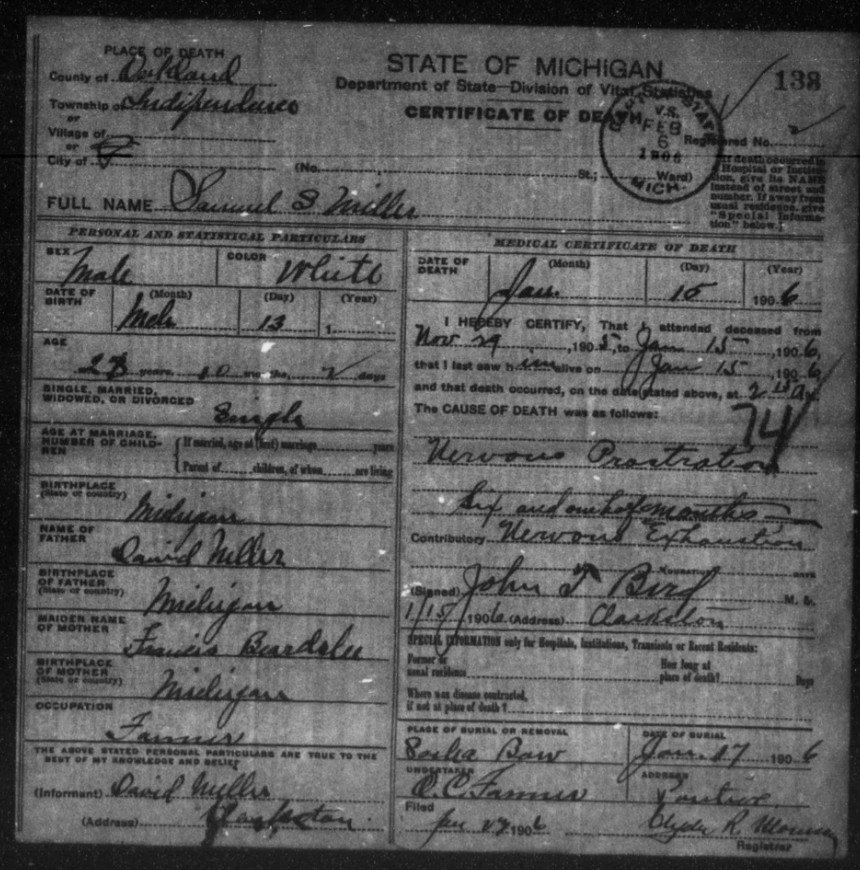 PLACE OF DEATH
County of Oakland
Township of Independence
or
Village of
or
City of
STATE OF MICHIGAN
Department of State—Division of Vital Statistics
CERTIFICATE OF DEATH
138
V.S.
FEB
6
1906
MICH.
Registered No.
(No. , St.; Ward)
If death occurred in
a Hospital or Institu-
tion, give its NAME
instead of street and
number. If away from
usual residence, give
"Special Informa-
tion" below.
FULL NAME Samuel S Miller
PERSONAL AND STATISTICAL PARTICULARS
SEX
Male
COLOR
White
DATE OF
BIRTH
(Month) (Day) (Year)
Mch 13 1
AGE
28 years, 10 months, 2 days
SINGLE, MARRIED,
WIDOWED, OR DIVORCED
Single
AGE AT MARRIAGE,
NUMBER OF CHILD-
REN
If married, age at (first) marriage years
Parent of children, of whom are living
BIRTHPLACE
(State or country)
Michigan
NAME OF
FATHER
David Miller
BIRTHPLACE
OF FATHER
(State or country)
Michigan
MAIDEN NAME
OF MOTHER
Francis Beardslee
BIRTHPLACE
OF MOTHER
(State or country)
Michigan
OCCUPATION
Farmer
THE ABOVE STATED PERSONAL PARTICULARS ARE TRUE TO THE
BEST OF MY KNOWLEDGE AND BELIEF
(Informant) David Miller
(Address) Clarkston
MEDICAL CERTIFICATE OF DEATH
DATE OF
DEATH
(Month) (Day) (Year)
Jan. 15 1906
I HEREBY CERTIFY, That I attended deceased from
Nov 29, 1905, to Jan 15, 1906,
that I last saw him alive on Jan 15, 1906
and that death occurred, on the date stated above, at 2
The CAUSE OF DEATH was as follows:
74
Nervous Prostration
Six and one half months
Contributory Nervous Exhaustion
DURATION DAYS
(Signed) John T Bird M. D.
1/15 1906 (Address) Clarkston
SPECIAL INFORMATION only for Hospitals, Institutions, Transients or Recent Residents:
Former or
usual residence
How long at
place of death? Days
Where was disease contracted,
if not at place of death?
PLACE OF BURIAL OR REMOVAL
DATE OF BURIAL
Jan. 17 1906
UNDERTAKER
O.C. Farmer
ADDRESS
Pontiac
Filed
Jan 17 1906
Clyde R.
Registrar